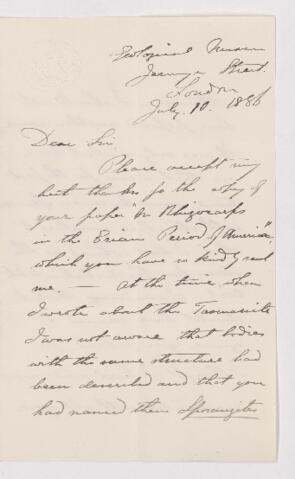 Geological Museum
Jermyn Street.
London
July. 10. 1886
Dear Sir.
Please accept my
best thanks for the copy of
your paper "On Rhizocarps
in the Erian Period of America",
which you have so kindly sent
me. — At the time when
I wrote about the Tasmanite
I was not aware that bodies
with the same structure had
been described and that you
had named them Sporangites